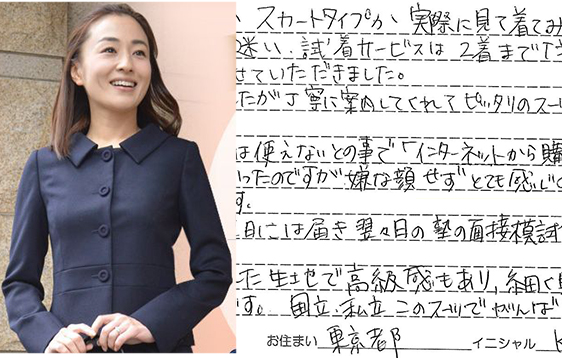 、スカートタイプか、実際に見て着てみ
迷い、試着サービスは2着まで
せていただきました。
たが丁寧に案内してくれてピッタリのスーツ
は使えないとの事で「インターネットから購
ったのですが嫌な顔せずとても感じ
す。
日には届き翌々日の塾の面接模試
た生地で高級感もあり、細く
す。国立、私立このスーツでがんば
お住まい 東京都 イニシャル K